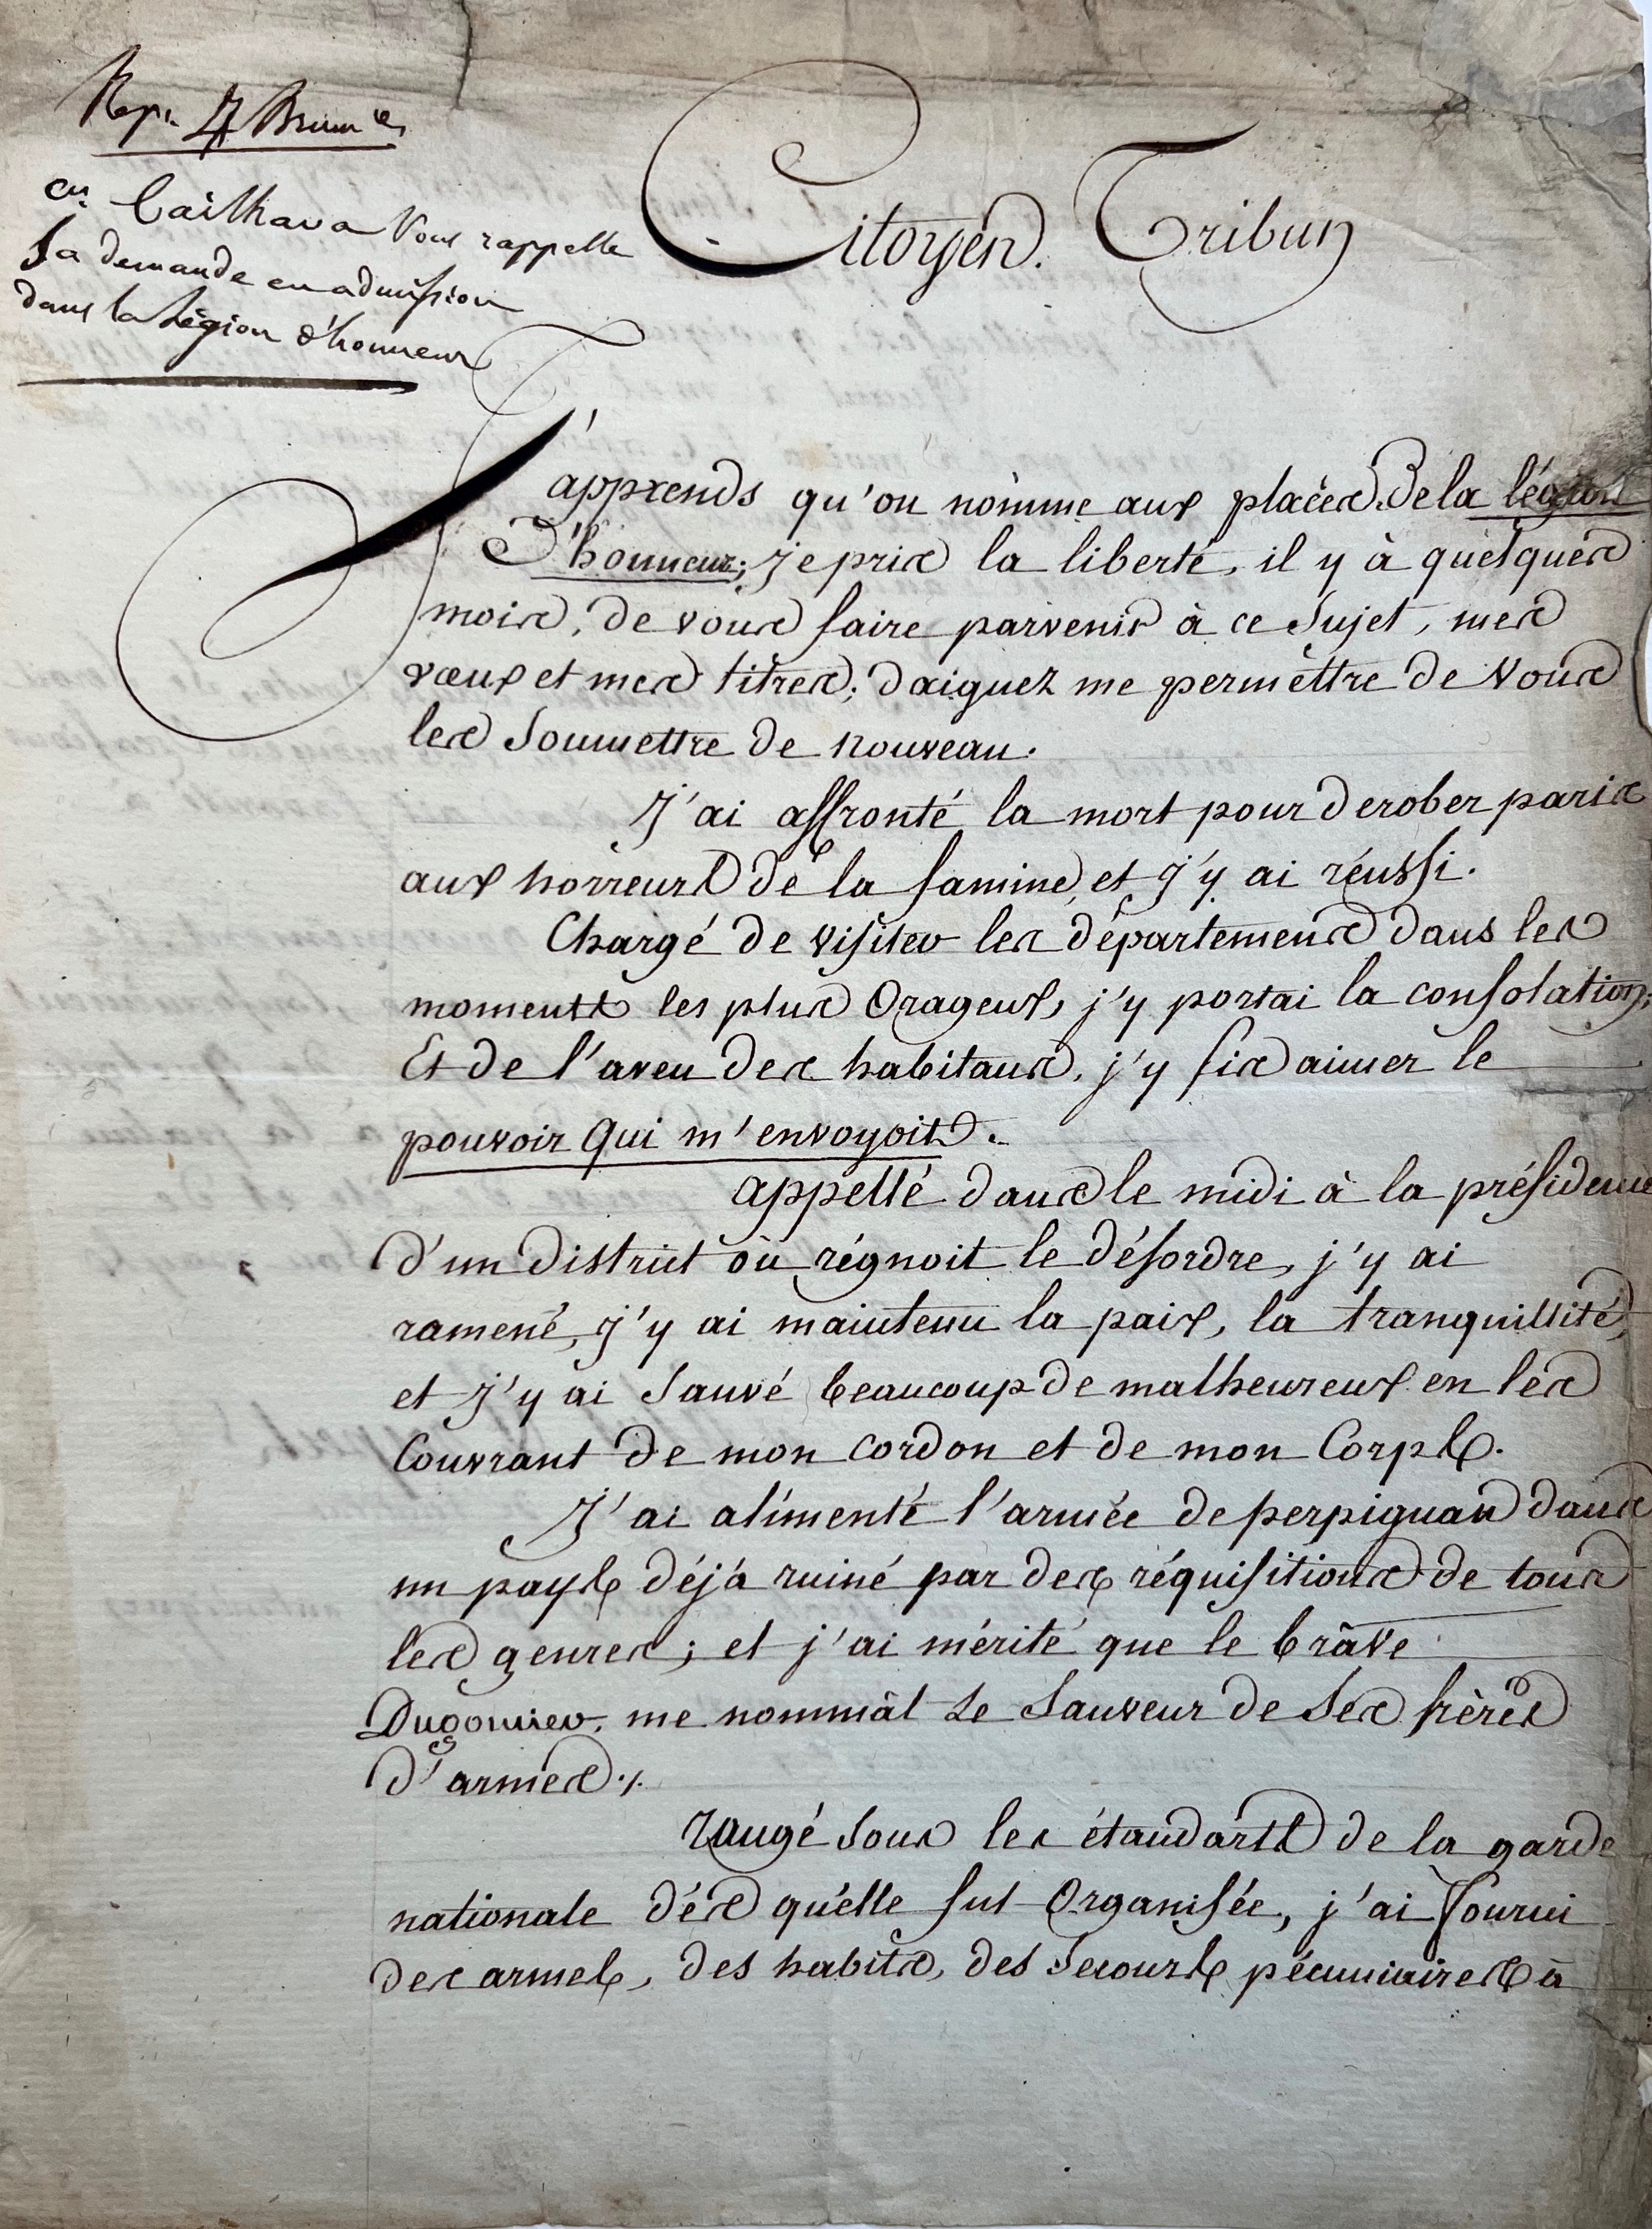 Rep. 4 Brum.re
Cn. Cailhava Vous rappelle
Sa demande en admission
dans la Légion d'honneur
Citoyen Tribun
J'apprends qu'on nomme aux places de la légion
d'honneur; je pris la liberté, il y à quelques
mois, de vous faire parvenir à ce Sujet, mes
vœux et mes titres; daignez me permettre de Vous
les Soumettre de nouveau.
J'ai affronté la mort pour derober paris
aux horreurs de la famine, et j'y ai réussi.
Chargé de visiter les départemens dans les
moments les plus Orageux, j'y portai la consolation;
Et de l'aveu des habitans, j'y fis aimer le
pouvoir qui m'envoyoit.
appellé dans le midi à la présidence
d'un district où régnoit le désordre, j'y ai
ramené, j'y ai maintenu la paix, la tranquillité,
et j'y ai Sauvé beaucoup de malheureux en les
Couvrant de mon cordon et de mon Corps.
J'ai alimenté l'armée de perpignan dans
un pays déjà ruiné par des réquisitions de tous
les genres; et j'ai mérité que le brave
Dugomier, me nommât Le Sauveur de Ses frères
d'armes./.
rangé Sous les étandarts de la garde
nationale dès qu'elle fut Organisée, j'ai fourni
des armes, des habits, des Secours pécuniaires à